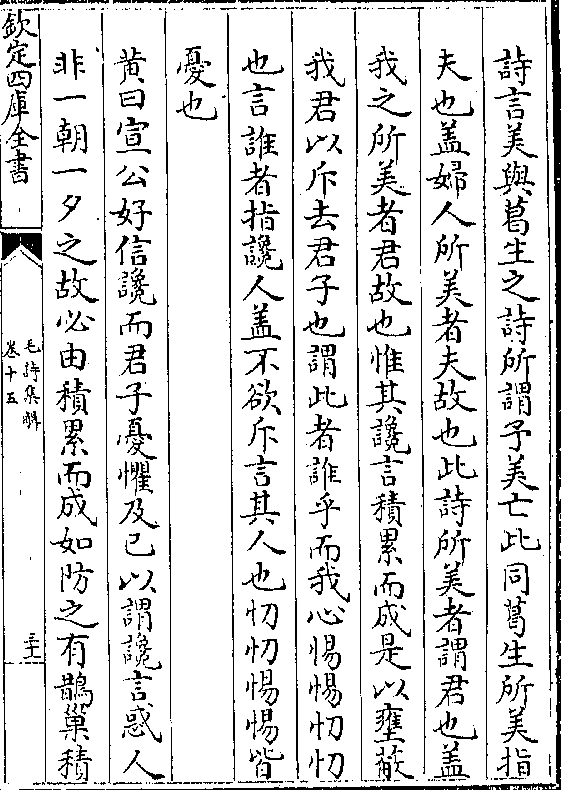 詩言美與葛生之詩所謂予美亡此同葛生所美指
夫也盖婦人所美者夫故也此詩所美者謂君也盖
我之所美者君故也惟其讒言積累而成是以壅蔽
我君以斥去君子也謂此者誰乎而我心惕惕忉忉
也言誰者指讒人盖不欲斥言其人也忉忉惕惕皆
憂也
黄曰宣公好信讒而君子憂懼及已以謂讒言惑人
非一朝一夕之故必由積累而成如防之有鵲巢積
欽定四庫全書
毛詩集解
卷十五
三十